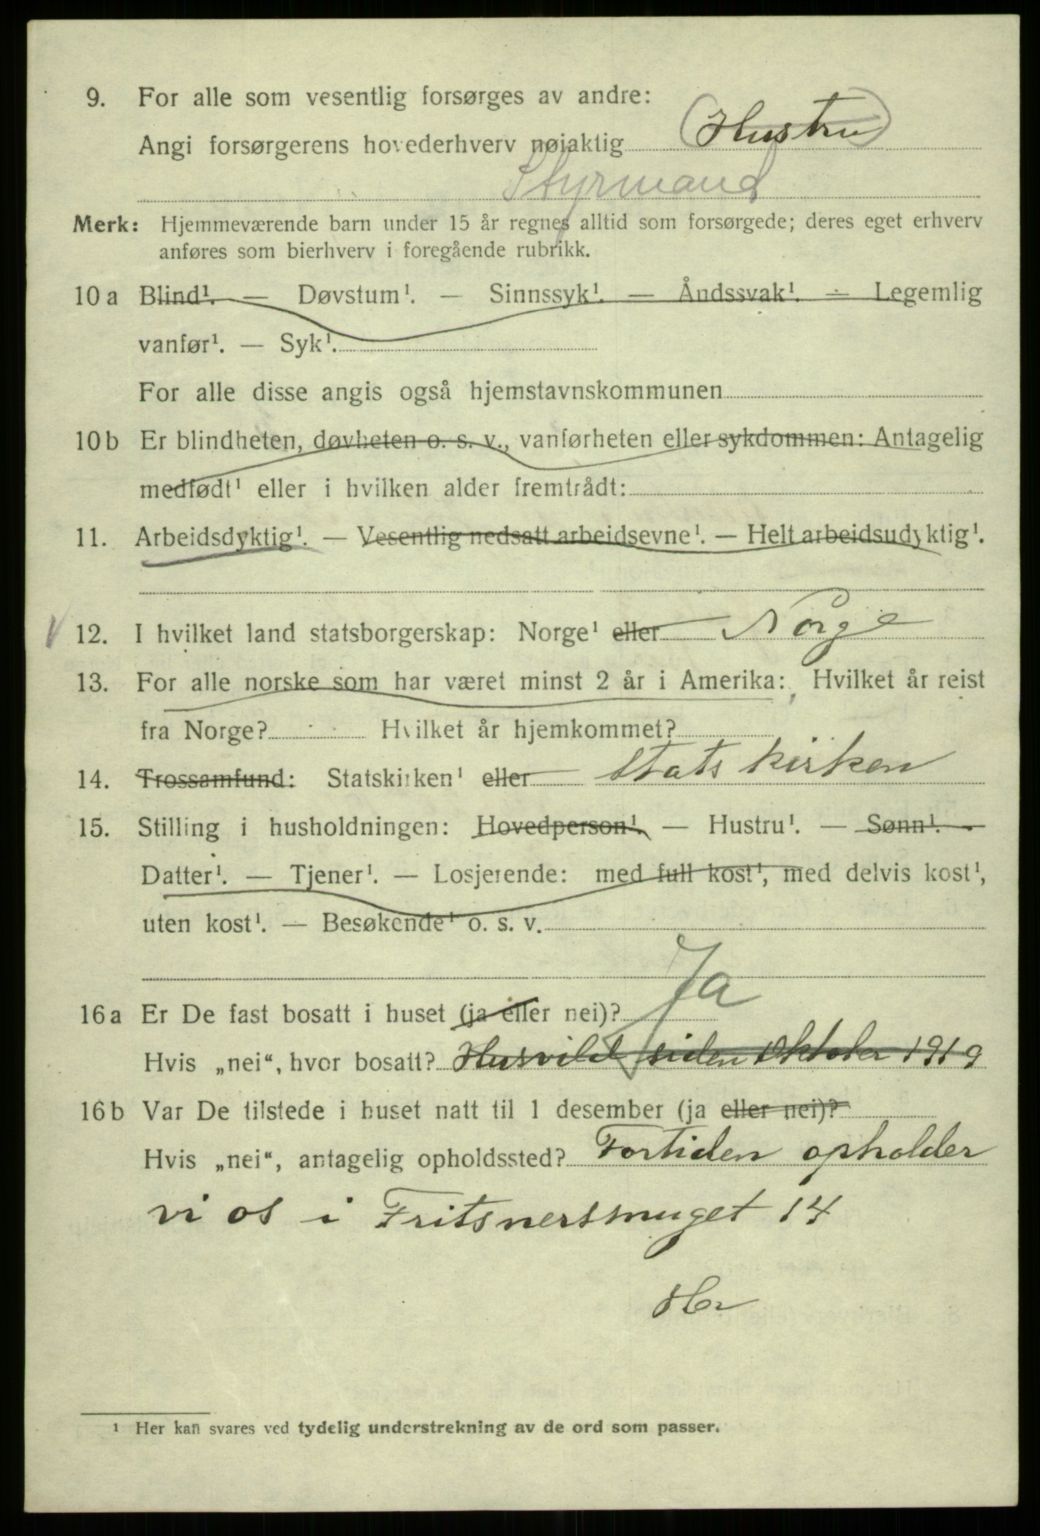 9. For alle som vesentlig forsørges av andre:
Angi forsørgerens hovederhverv nøiaktig (Hustru)
Styrmand
Merk: Hjemmeværende barn under 15 år regnes alltid som forsørgede; deres eget erhverv
anføres som bierhverv i foregående rubrikk.
10 a Blind¹. — Døvstum¹. — Sinnssyk¹. — Åndssvak¹. — Legemlig
vanfør¹. — Syk¹.
For alle disse angis også hjemstavnskommunen
10 b Er blindheten, døvheten o. s. v., vanførheten eller sykdommen: Antagelig
medfødt¹ eller i hvilken alder fremtrådt:
11. Arbeidsdyktig¹. — Vesentlig nedsatt arbeidsevne¹. — Helt arbeidsudyktig¹.
12. I hvilket land statsborgerskap: Norge¹ eller Norge
13. For alle norske som har været minst 2 år i Amerika: Hvilket år reist
fra Norge? Hvilket år hjemkommet?
14. Trossamfund: Statskirken¹ eller Statskirken
15. Stilling i husholdningen: Hovedperson¹. — Hustru¹. — Sønn¹. -
Datter¹. — Tjener¹. — Losjerende: med full kost¹, med delvis kost¹,
uten kost¹. — Besøkende¹ o. s. v.
16 a Er De fast bosatt i huset (ja eller nei)? Ja
Hvis „nei“, hvor bosatt? Husvild siden Oktober 1919
16 b Var De tilstede i huset natt til 1 desember (ja eller nei)?
Hvis „nei“, antagelig opholdssted? Fortiden opholder
vi os i Fritsnersmuget 14
¹ Her kan svares ved tydelig understrekning av de ord som passer.